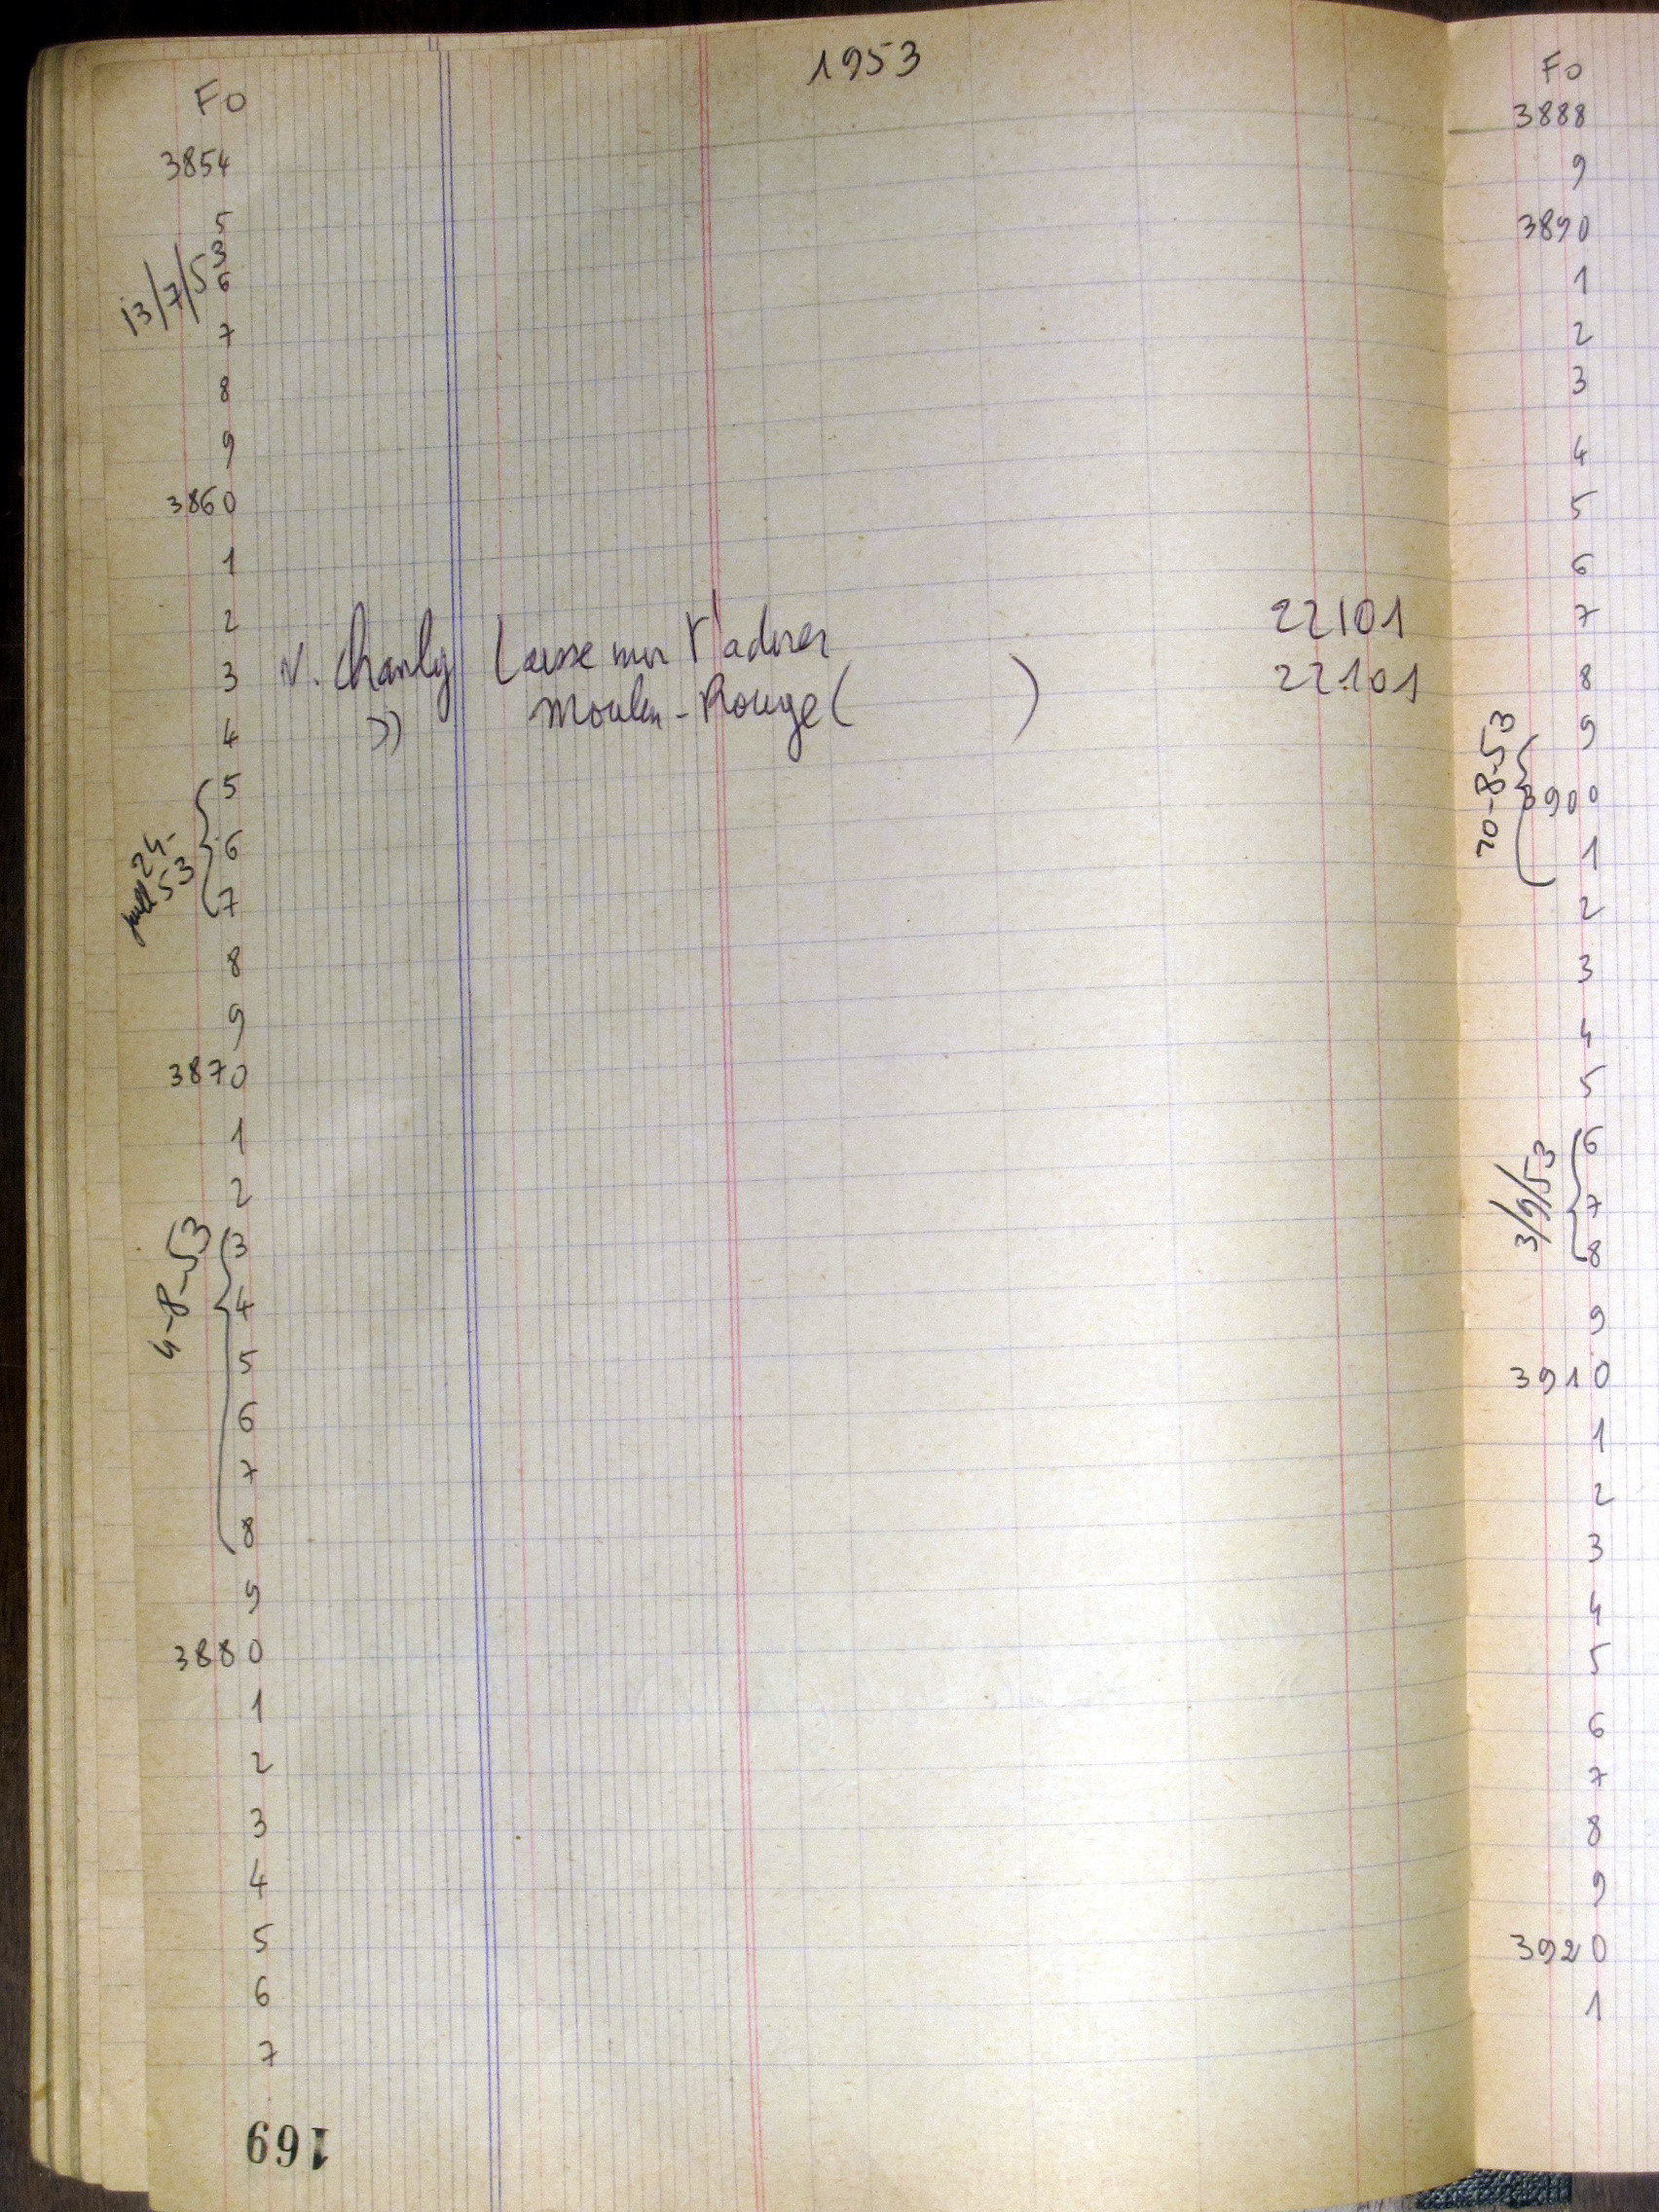 1953
Fo
3854
5
13/7/53
6
7
8
9
3860
1
2
3 N. Charly Laisse moi t'adorer 22101
4 " Moulin-Rouge ( ) 22101
5
6
7
24-
53
8
9
3870
1
2
4-8-53
3
4
5
6
7
8
9
3880
1
2
3
4
5
6
7
169
Fo
3888
9
3890
1
2
3
4
5
6
7
8
9
3900
1
20-8-53
2
3
4
5
3/9/53
6
7
8
9
3910
1
2
3
4
5
6
7
8
9
3920
1